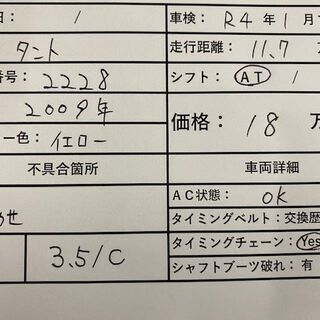 日： / 車検： R4年1月
タント 走行距離： 11.7
番号： 2228 シフト： AT /
2009年 価格： 18万
一色： イエロー
不具合箇所 車両詳細
AC状態： ok
タイミングベルト：交換歴
タイミングチェーン：Yes
3.5/C シャフトブーツ破れ：有